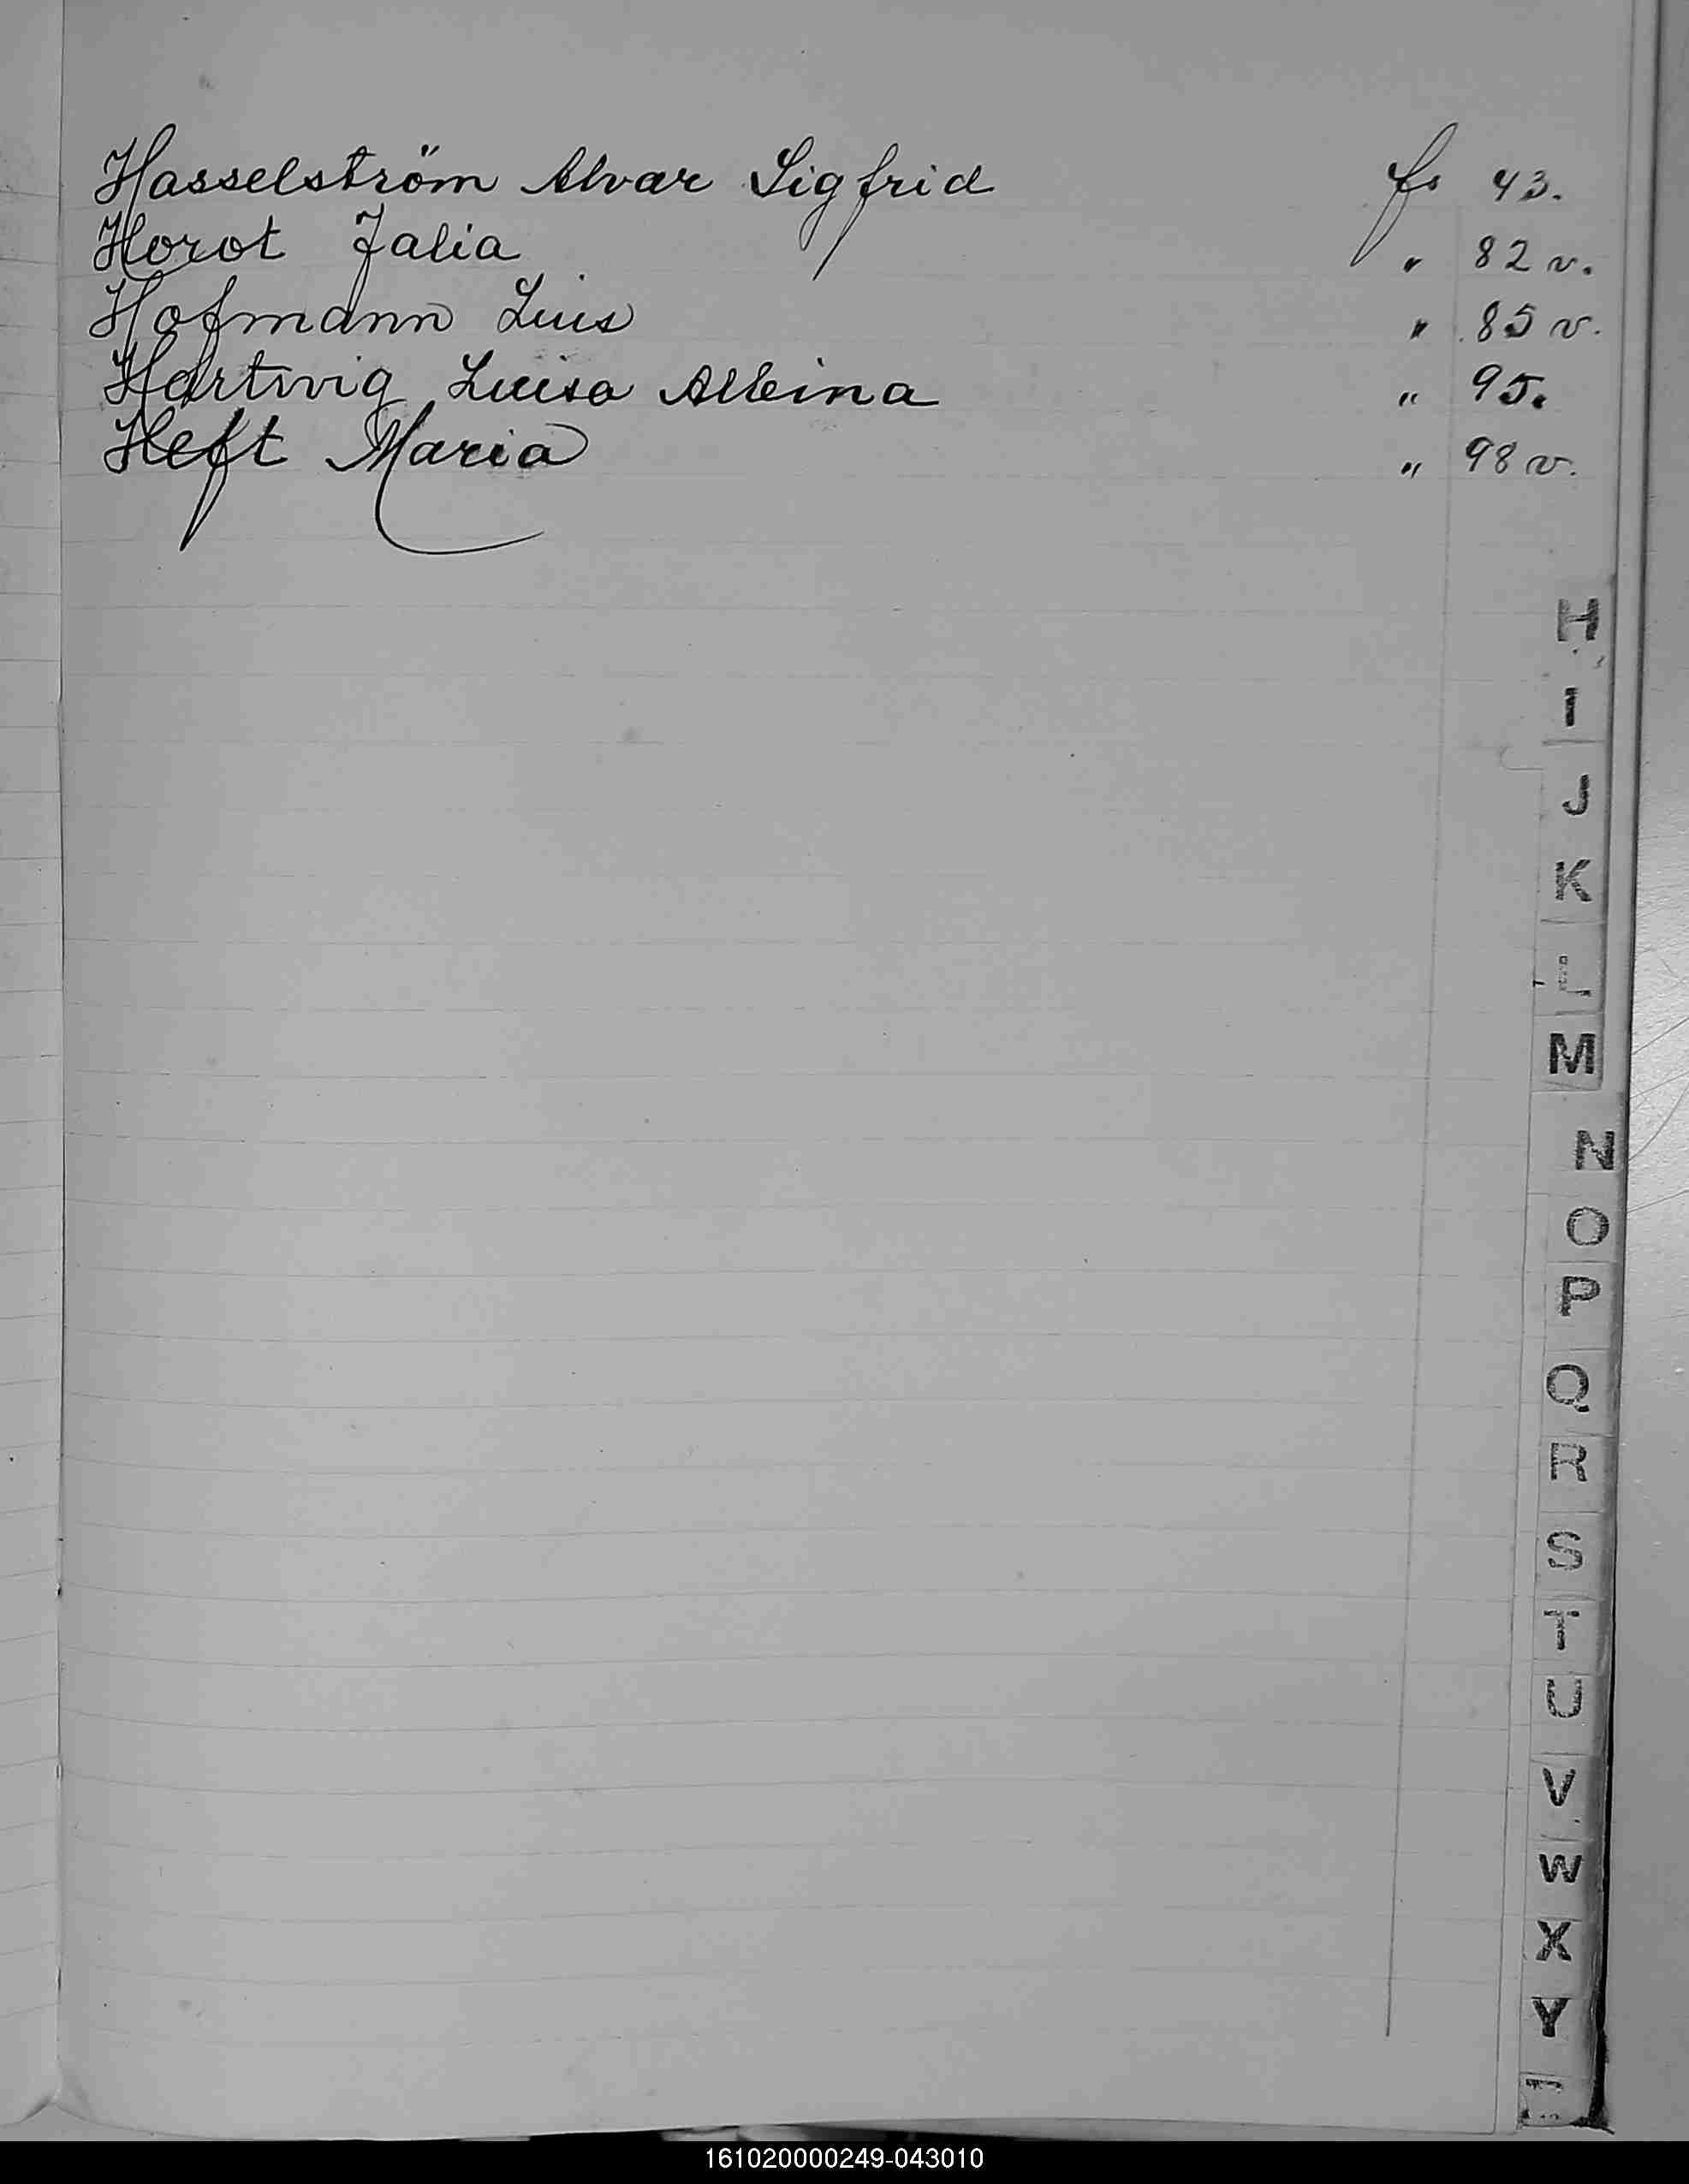 Hasselström Alvar Sigfrid fs 43.
Horot Jalia " 82 v.
Hofmann Luis " 85 v.
Hartwig Luisa Albina " 95.
Heft Maria " 98 v.
H
I
J
K
L
M
N
O
P
Q
R
S
T
U
V
W
X
Y
161020000249-043010